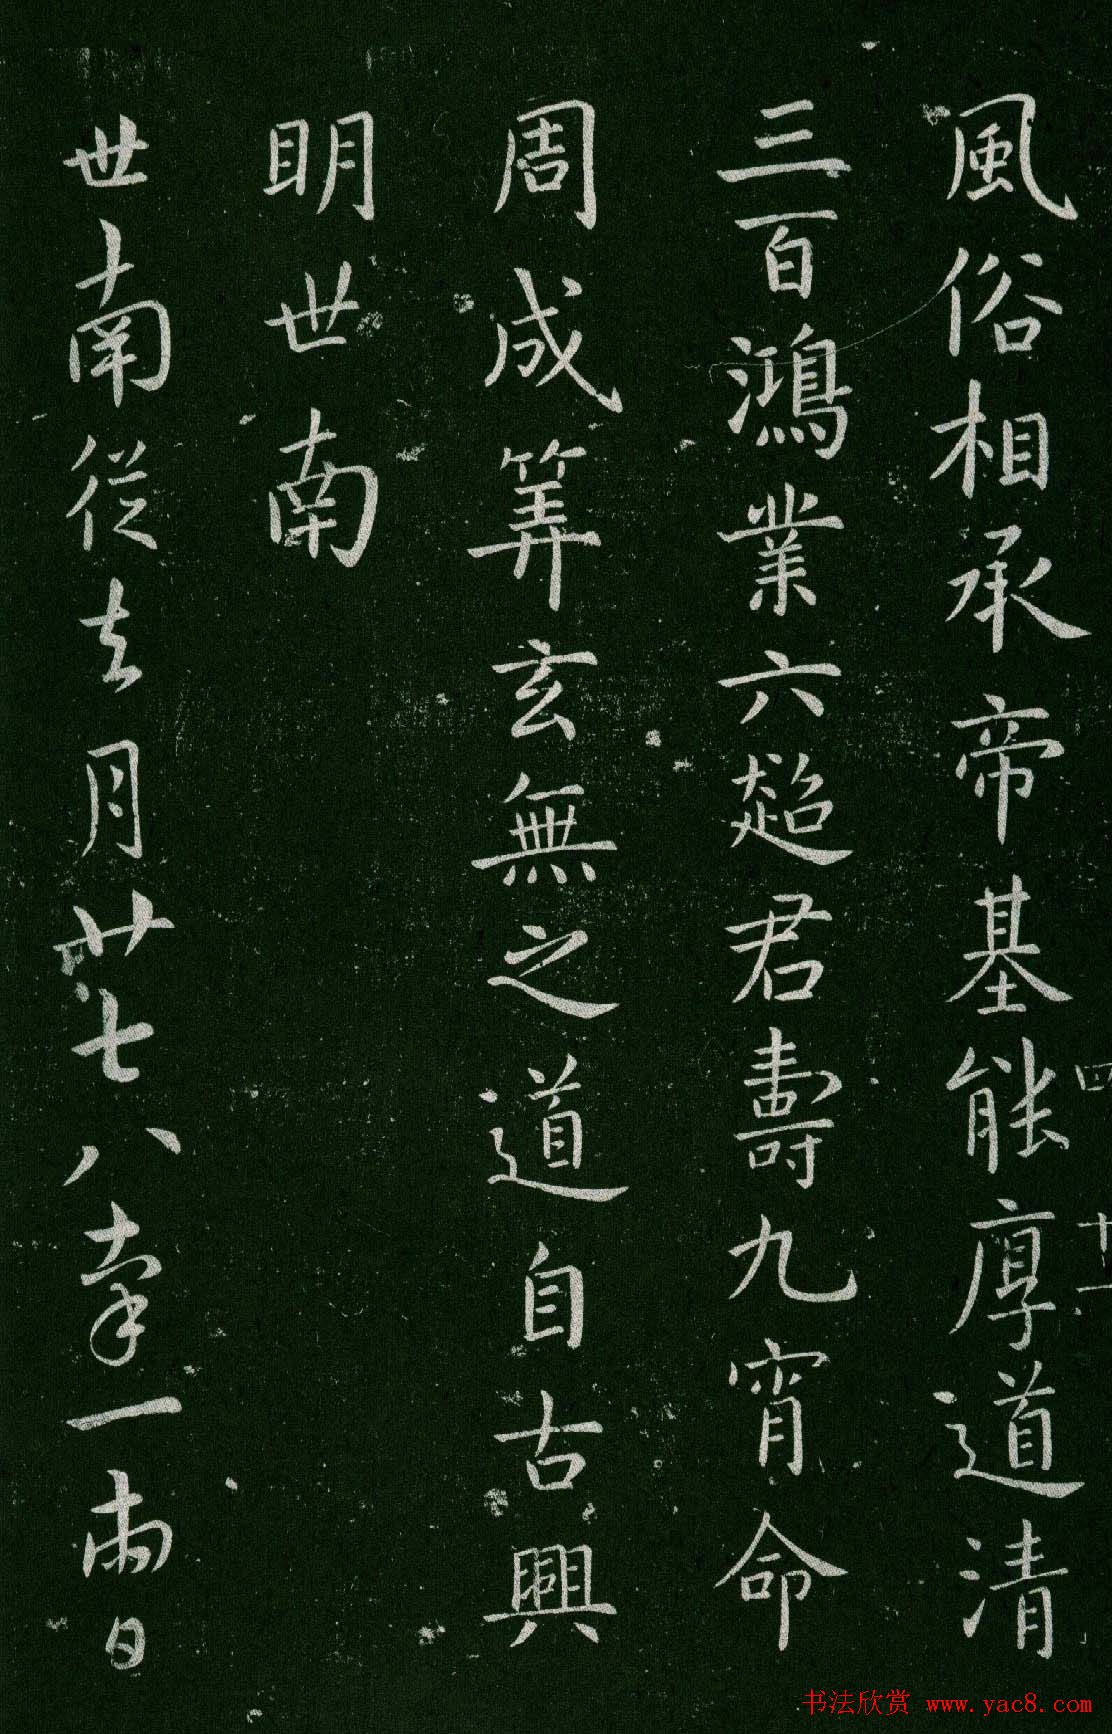 風俗相承帝基能厚道清
三百鴻業六超君壽九宵命
周成筭玄無之道自古興
明世南
世南從去月廿七八率一兩日
四
十二
书法欣赏 www.yac8.com